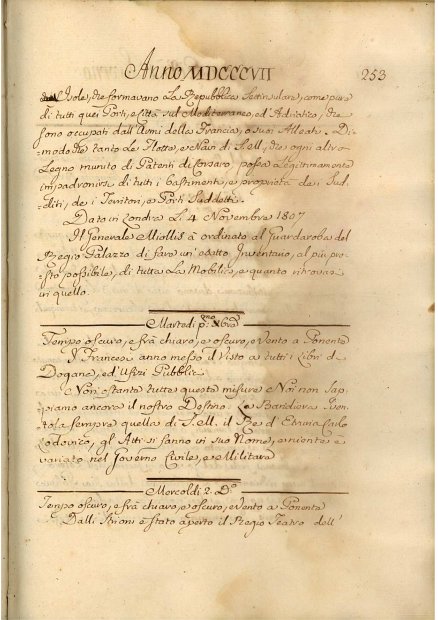 Anno MDCCCVII
253
Isole, che formavano La Repubblica Settinsulare, come pure
di tutti quei Porti, e Città sul Mediterraneo, ed Adriatico, che
sono occupati dall'Armi della Francia, o suoi Alleati. Di-
=modoche tanto Le Flotte, e Navi di S. M., che ogni altro
Legno munito di Patenti di Corsaro possa Legittimamente
impadronirsi di tutti i bastimenti, e proprietà de i Sud-
diti, de i Territorj, e Porti Suddetti.
Data in Londra Li 4 Novembre 1807
Il Generale Miollis à ordinato al Guardaroba del
Regio Palazzo di fare un' esatto Inventario, al più pre-
sto possibile, di tutta La Mobilia, e quanto ritrovasi
in quello.
Martedì p.mo Xbre
Tempo oscuro, e frà chiaro, e oscuro, e Vento a Ponente
I Francesi anno messo il Visto a tutti i Libri di
Dogane, ed Ufizi Pubblici
Non ostante tutte queste misure Noi non Sap-
piamo ancora il nostro Destino. La Bandiera Iven-
tola sempre quella di S. M. il Re d'Etruria Carlo
Lodovico, gli Atti si fanno in suo Nome, e niente è
variato nel Governo Civile, e Militare
Mercoldì 2. D.o
Tempo oscuro, e frà chiaro, e oscuro, e Vento a Ponente
Dalli Istrioni è stato aperto il Regio Teatro dell'